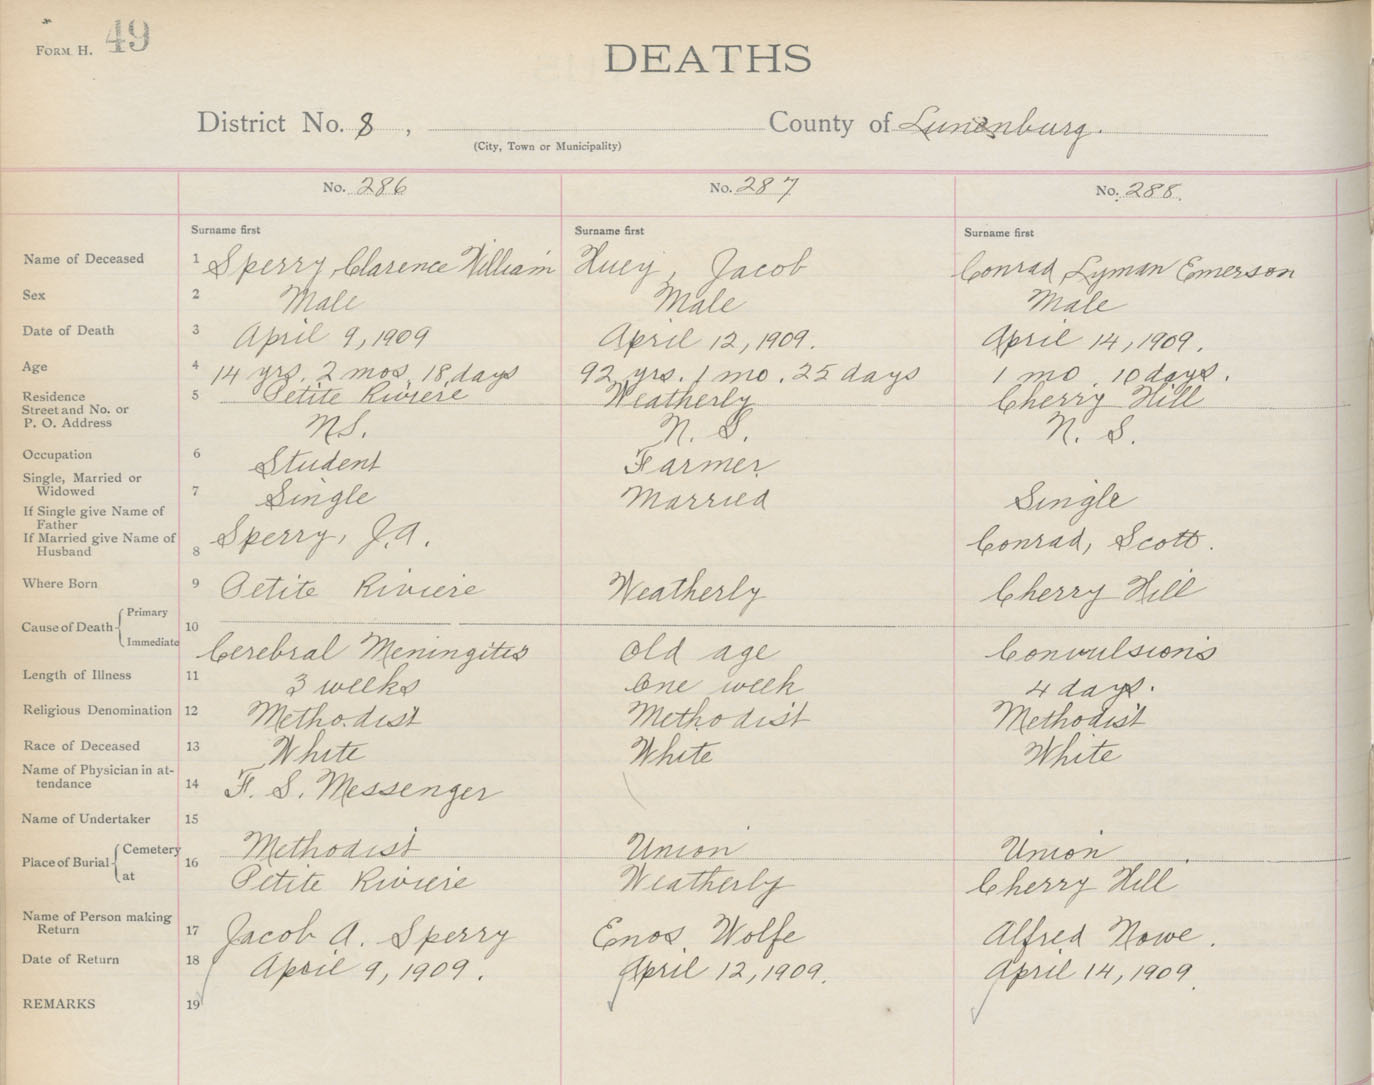 Form H. 49
DEATHS
District No. 8 , County of Lunenburg.
(City, Town or Municipality)
No. 286 No. 287 No. 288.
Surname first Surname first Surname first
Name of Deceased 1 Sperry, Clarence William Huey, Jacob Conrad Lyman Emerson
Sex 2 Male Male Male
Date of Death 3 April 9, 1909 April 12, 1909. April 14, 1909.
Age 4 14 yrs. 2 mos. 18 days 92 yrs. 1 mo. 25 days 1 mo. 10 days.
Residence 5 Petite Riviere Weatherly Cherry Hill
Street and No. or
P. O. Address N.S. N. S. N. S.
Occupation 6 Student Farmer
Single, Married or
Widowed 7 Single Married Single
If Single give Name of
Father
If Married give Name of
Husband 8 Sperry, J.A. Conrad, Scott.
Where Born 9 Petite Riviere Weatherly Cherry Hill
Cause of Death Primary 10
Immediate Cerebral Meningitis Old age Convulsions
Length of Illness 11 3 weeks One week 4 days.
Religious Denomination 12 Methodist Methodist Methodist
Race of Deceased 13 White White White
Name of Physician in at-
tendance 14 F. S. Messenger
Name of Undertaker 15
Place of Burial Cemetery 16 Methodist Union Union
at Petite Riviere Weatherly Cherry Hill
Name of Person making
Return 17 Jacob A. Sperry Enos Wolfe Alfred Nowe.
Date of Return 18 April 9, 1909. April 12, 1909. April 14, 1909.
REMARKS 19